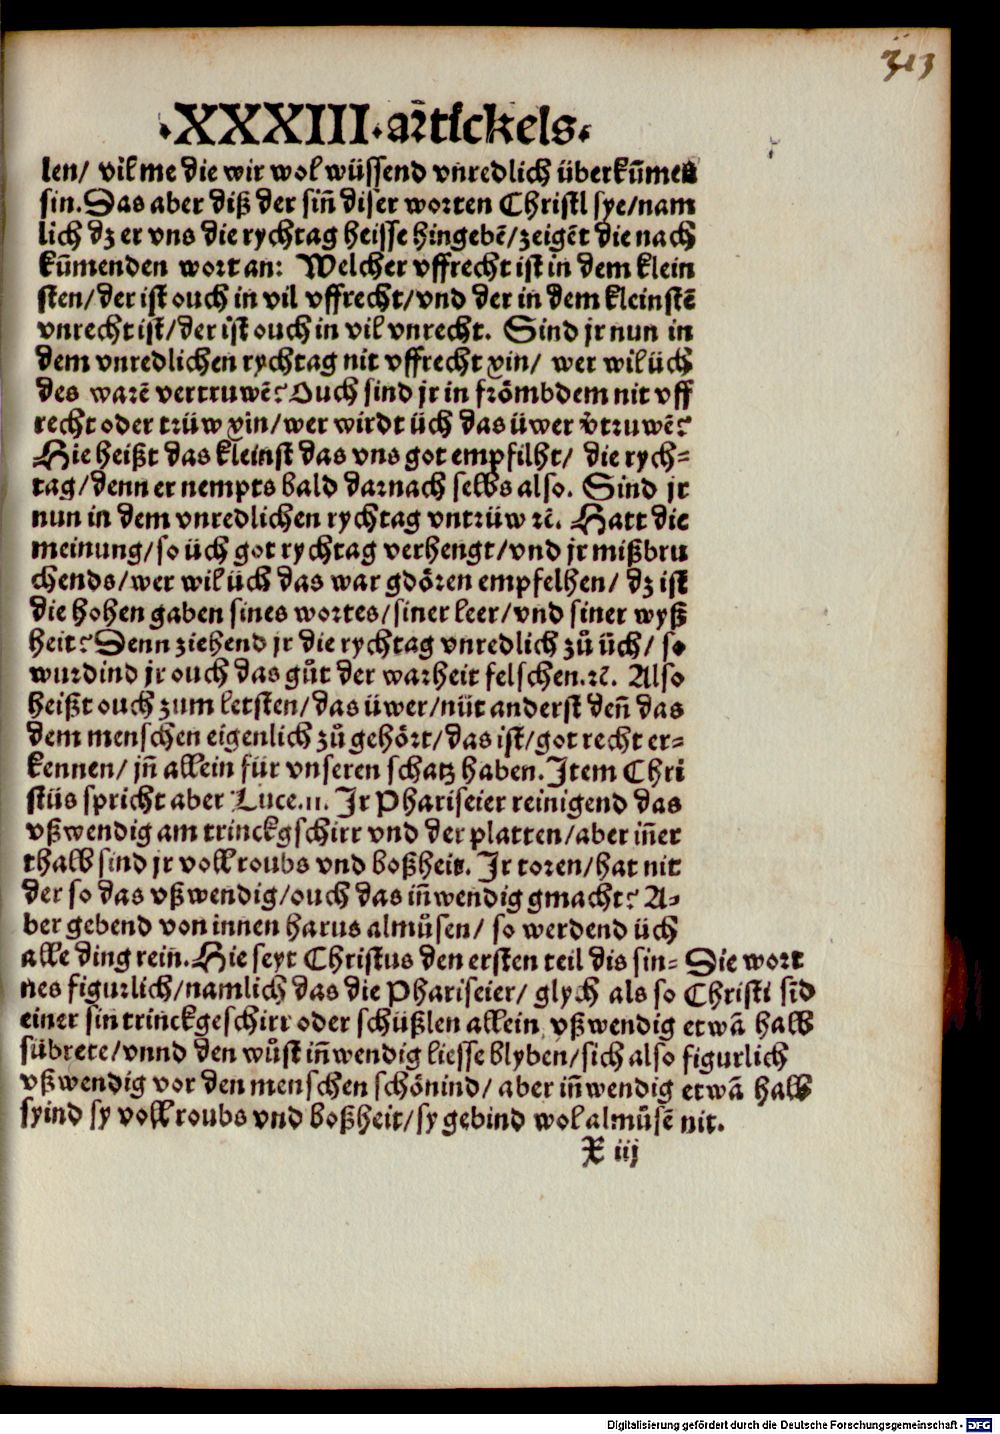 313
·XXXIII·artickels·
len/ vil me die wir wol wüssend vnredlich überkūmen
sin. Das aber diß der siñ diser worten Christi sye/nam
lich dz er vns die rychtag heisse hingebē/zeigēt die nach
kūmenden wort an: Welcher vffrecht ist in dem klein
sten/der ist ouch in vil vffrecht/vnd der in dem kleinstē
vnrecht ist/der ist ouch in vil vnrecht. Sind jr nun in
dem vnredlichen rychtag nit vffrecht xin/ wer wil üch
des warē vertruwē? Ouch sind jr in frömbdem nit vff
recht oder trüw xin/wer wirdt üch das üwer v̄truwē?
Hie heißt das kleinst das vns got empfilht/ die rych=
tag/denn er nempts bald darnach selbs also. Sind jr
nun in dem vnredlichen rychtag vntrüw ꝛc̄. Hatt die
meinung/so üch got rychtag verhengt/vnd jr mißbru
chends/wer wil üch das war gdören empfelhen/ dz ist
die hohen gaben sines wortes/siner leer/vnd siner wyß
heit? Denn ziehend jr die rychtag vnredlich zů üch/ so
wurdind jr ouch das gůt der warheit felschen.ꝛc̄. Also
heißt ouch zum letsten/das üwer/nüt anderst deñ das
dem menschen eigenlich zů gehört/das ist/got recht er=
kennen/ jñ allein für vnseren schatz haben. Item Chri
stus spricht aber Luce.11. Ir Phariseier reinigend das
vßwendig am trinckgschirr vnd der platten/aber iñer
thalb sind jr voll roubs vnd boßheit. Ir toren/hat nit
der so das vßwendig/ouch das iñwendig gmacht? A=
ber gebend von innen harus almůsen/ so werdend üch
alle ding rein. Hie seyt Christus den ersten teil dis sin=
nes figurlich/namlich das die Phariseier/ glych als so
einer sin trinckgeschirr oder schüßlen allein vßwendig
sübrete/vnnd den wůst iñwendig liesse blyben/sich also
vßwendig vor den menschen schönind/ aber iñwendig
syind sy voll roubs vnd boßheit/sy gebind wol almůsē
Die wort
Christi sīd
etwā halb
figurlich
etwā halb
nit.
X iij
Digitalisierung gefördert durch die Deutsche Forschungsgemeinschaft - DFG